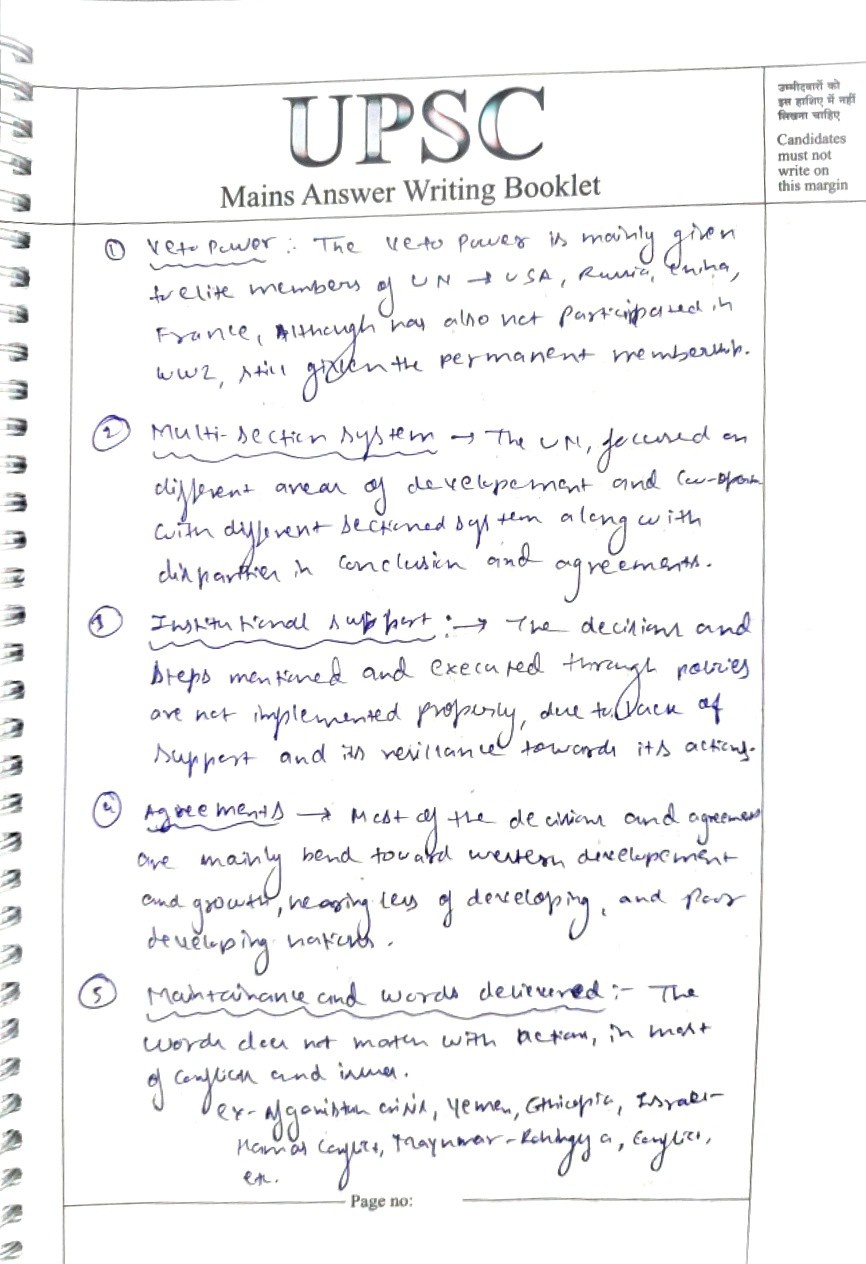 UPSC
Mains Answer Writing Booklet
उम्मीदवारों को
इस हाशिए में नहीं
लिखना चाहिए
Candidates
must not
write on
this margin
① Veto Power :- The Veto Power is mainly given
to elite members of UN → USA, Russia, China,
France, Although has also not participated in
WW2, still given the permanent membership.
② Multi-section system → The UN, focused on
different areas of developement and
with different sectioned system along with
in conclusion and agreements.
③ Institutional support :→ The decisions and
steps mentioned and executed through policies
are not implemented properly, due to lack of
support and its towards its actions.
④ Agreements → Most of the decisions and agreements
are mainly bend toward western developement
and growth, hearing less of developing, and poor
developing nations.
⑤ Maintainance and words delievered :- The
words does not match with action, in most
of conflicts and issues.
ex- Afganistan crisis, Yemen, Ethiopia, Israel-
Hamas conflict, Maynmar-Rohingya, conflict,
etc.
Page no: